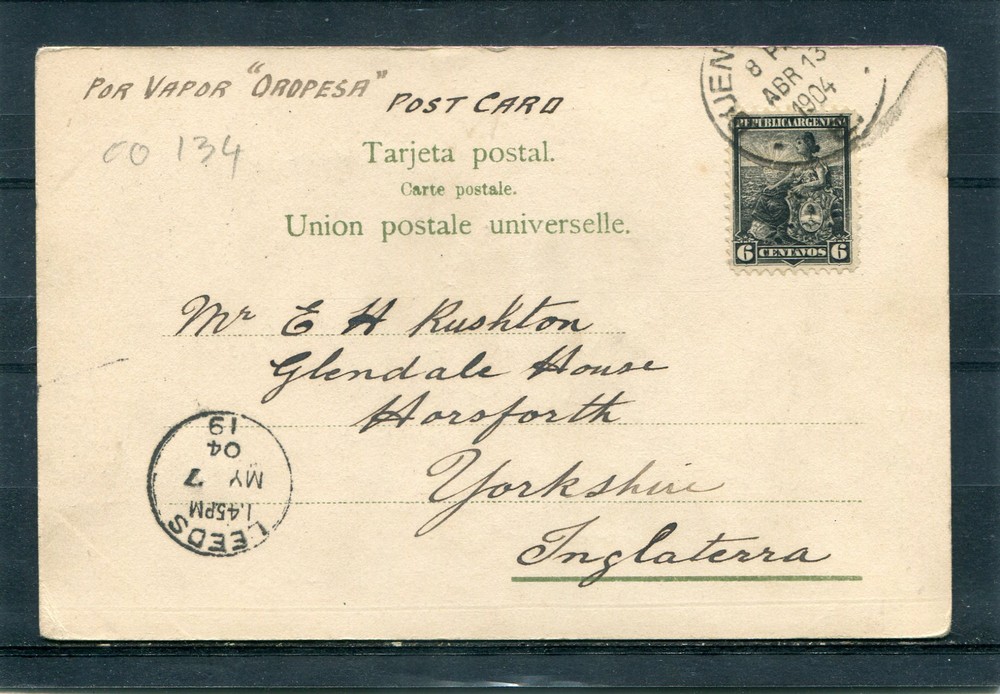 POR VAPOR "OROPESA"
POST CARD
CO 134
Tarjeta postal.
Carte postale.
Union postale universelle.
UEN
8 P
ABR 13
1904
REPUBLICA ARGENTINA
6 CENTAVOS 6
Mr E H Rushton
Glendale House
Horsforth
Yorkshire
Inglaterra
LEEDS
1.45PM
MY 7
04
19